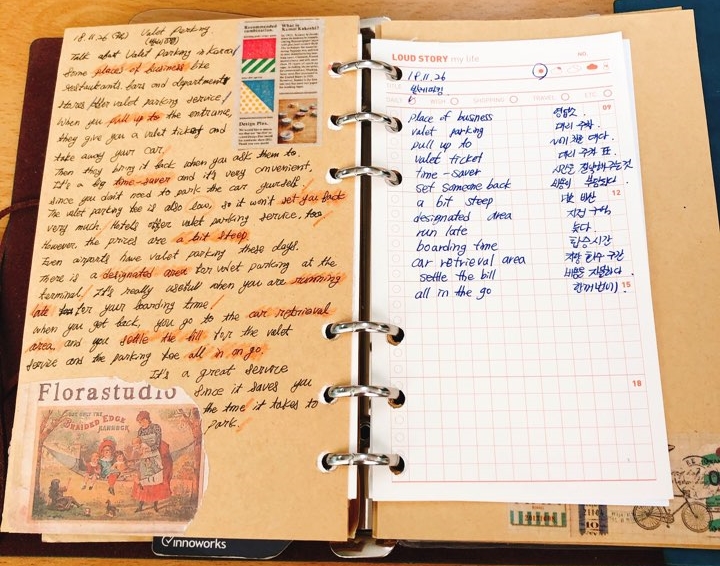 18.11.26 (월) Valet Parking
(발레파킹)
Talk about Valet Parking in Korea
Some places of business like
restaurants, bars and department
stores offer valet parking service/
When you pull up to the entrance,
they give you a valet ticket and
take away your car.
Then they bring it back when you ask them to.
It's a big time-saver and it's very convenient,
since you don't need to park the car yourself.
The valet parking fee is also low, so it won't set you back
very much/ Hotels offer valet parking service, too/
However, the prizes are a bit steep.
Even airports have valet parking these days.
There is a designated area for valet parking at the
terminal/ It's really useful when you are running
late for your boarding time/
when you got back, you go to the car retrieval
area, and you settle the bill for the valet
service and the parking fee all in on go.
It's a great service
since it saves you
the time it takes to
park.
Recommended
combination.
What is
Design Plus.
Florastudio
USE ONLY THE
BRAIDED EDGE
HAMMOCK
innoworks
LOUD STORY my life
NO.
18.11.26
발레파킹
DAILY WISH SHOPPING TRAVEL ETC
09
place of business 영업소
valet parking 대리 주차
pull up to
valet ticket 대리 주차 표
time-saver
set someone back
a bit steep 비싼
designated area 지정 구역
run late 늦다
boarding time 탑승시간
car retrieval area
settle the bill 비용을 지불하다
all in the go 한꺼번에
12
15
18